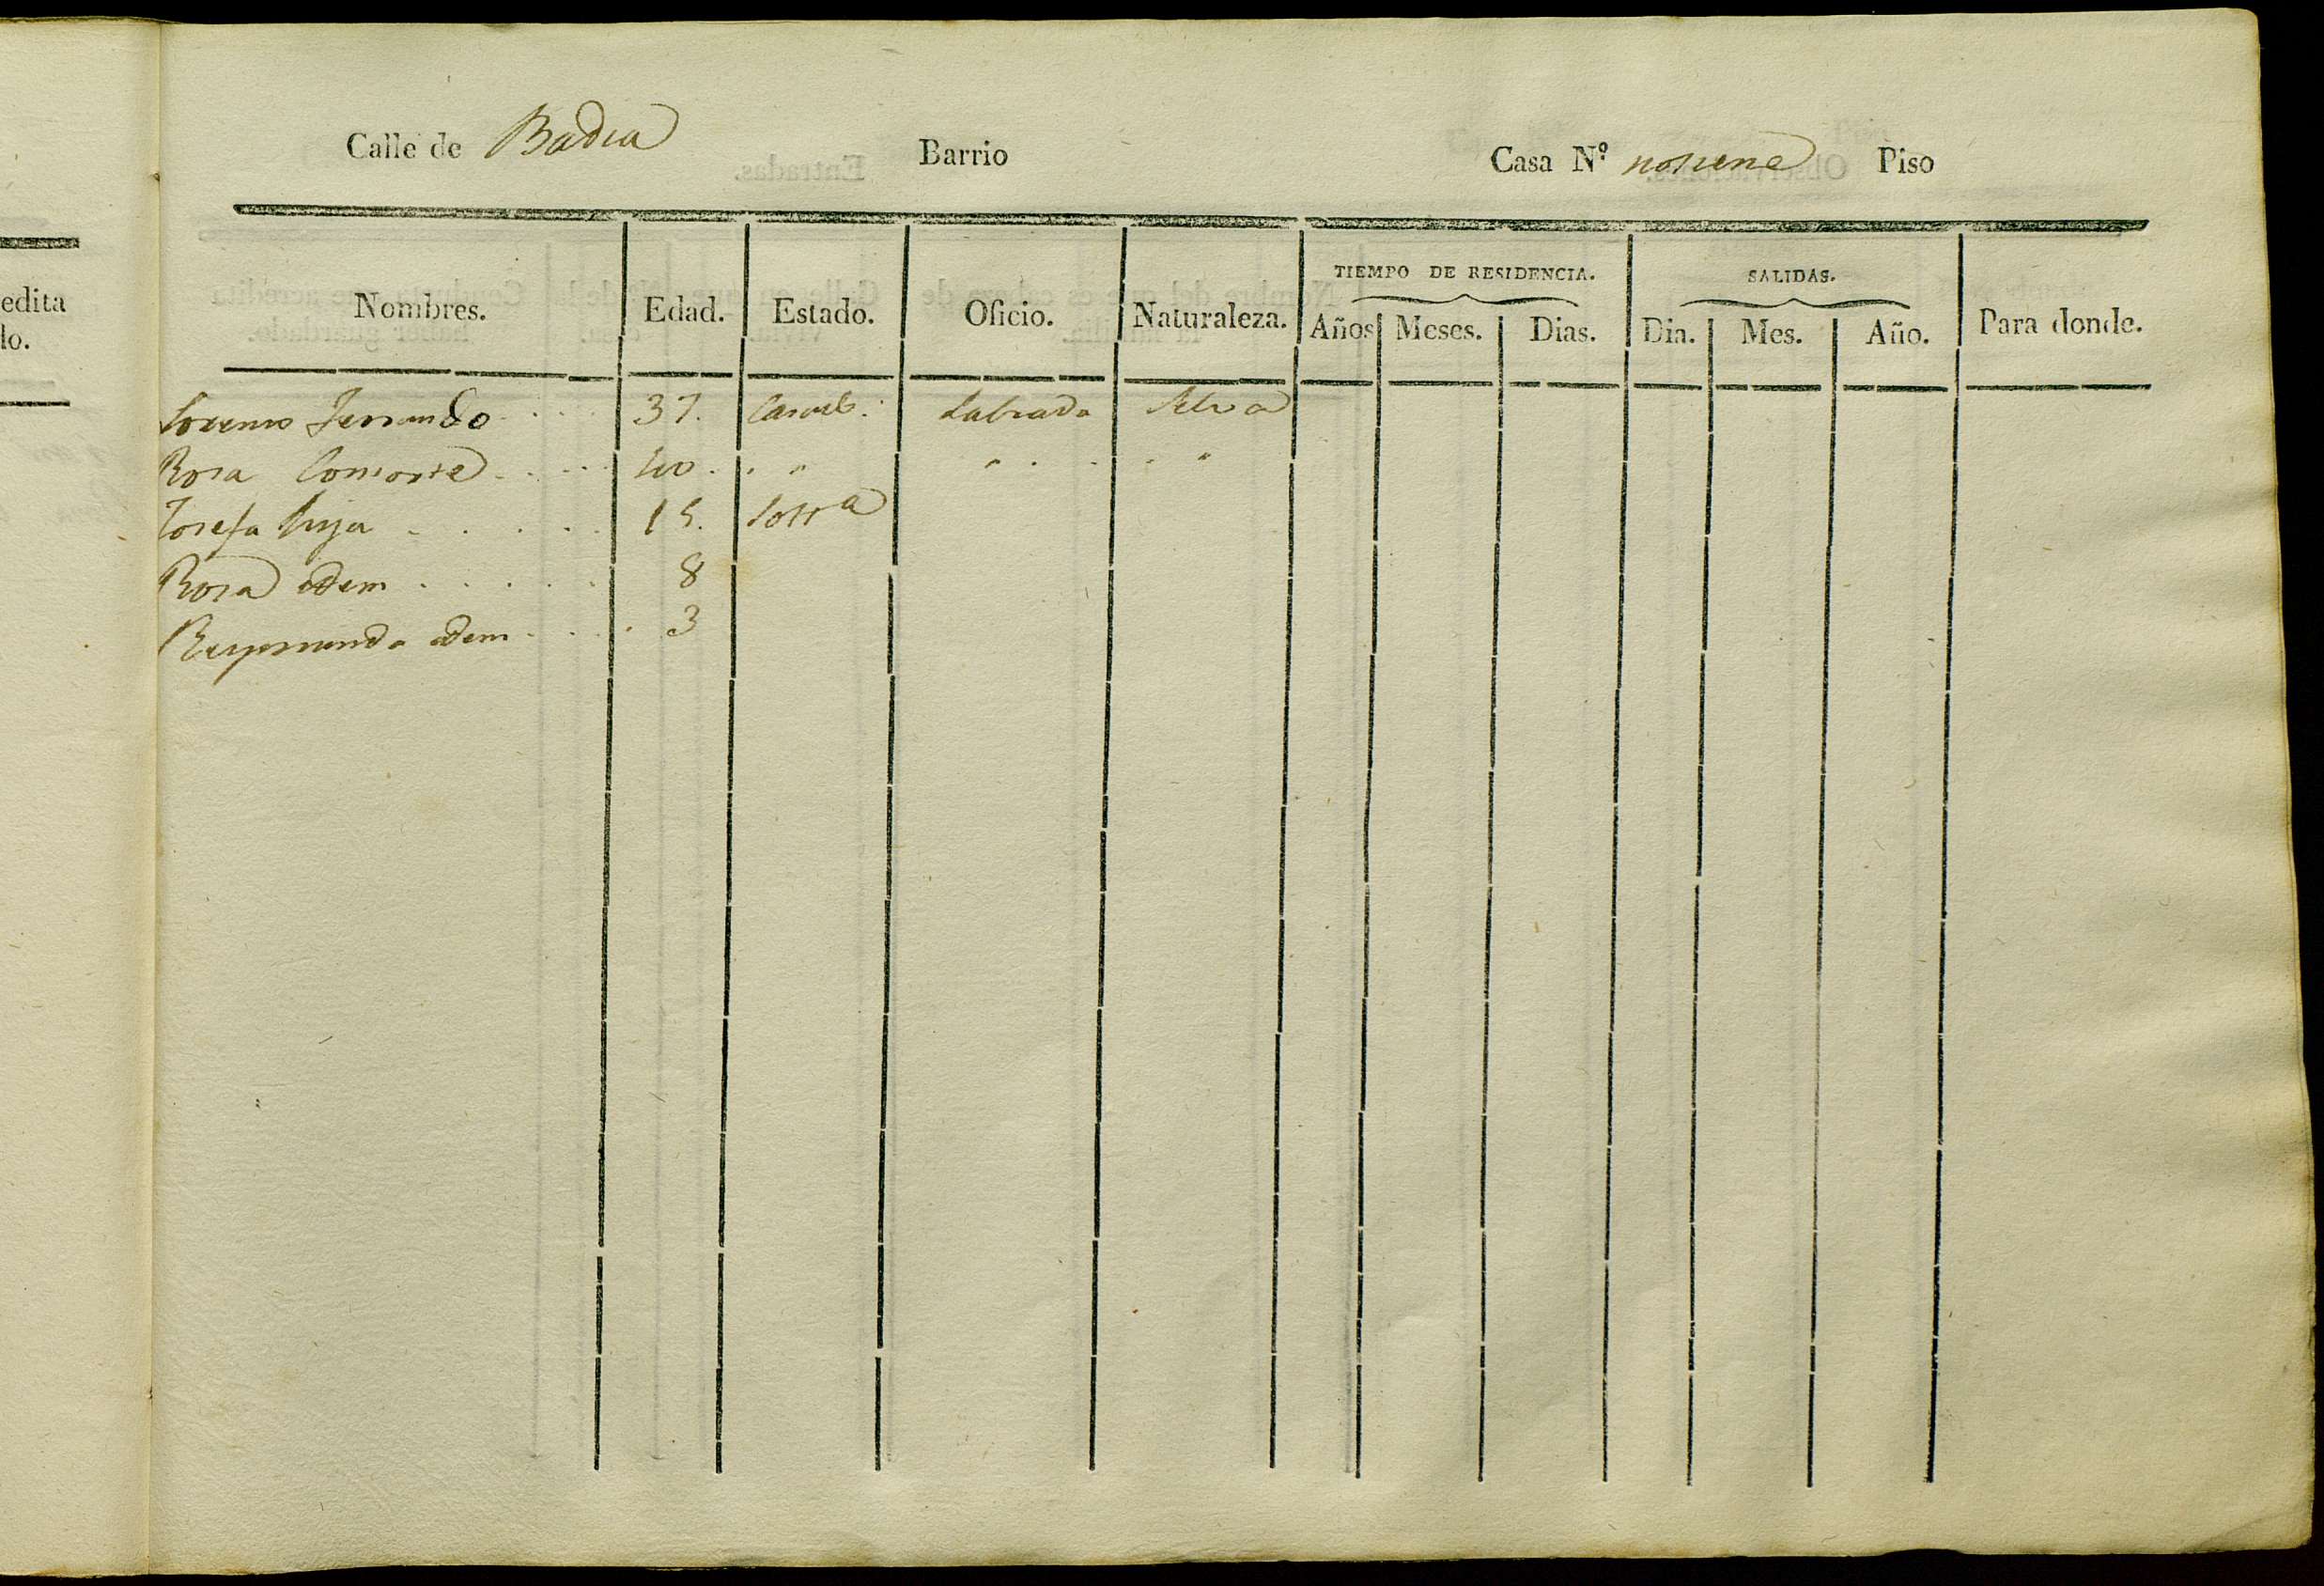 Calle de Badia Barrio Casa Nº no tiene Piso
edita
lo.
TIEMPO DE RESIDENCIA. SALIDAS.
Nombres. Edad. Estado. Oficio. Naturaleza. Años Meses. Dias. Dia. Mes. Año. Para donde.
Lorenso Ferrando 37. Casado. Labrado Selva
Rosa Consorte 40. " " "
Josefa hija 15. Soltra
Rosa idem 8
Raymunda idem 3